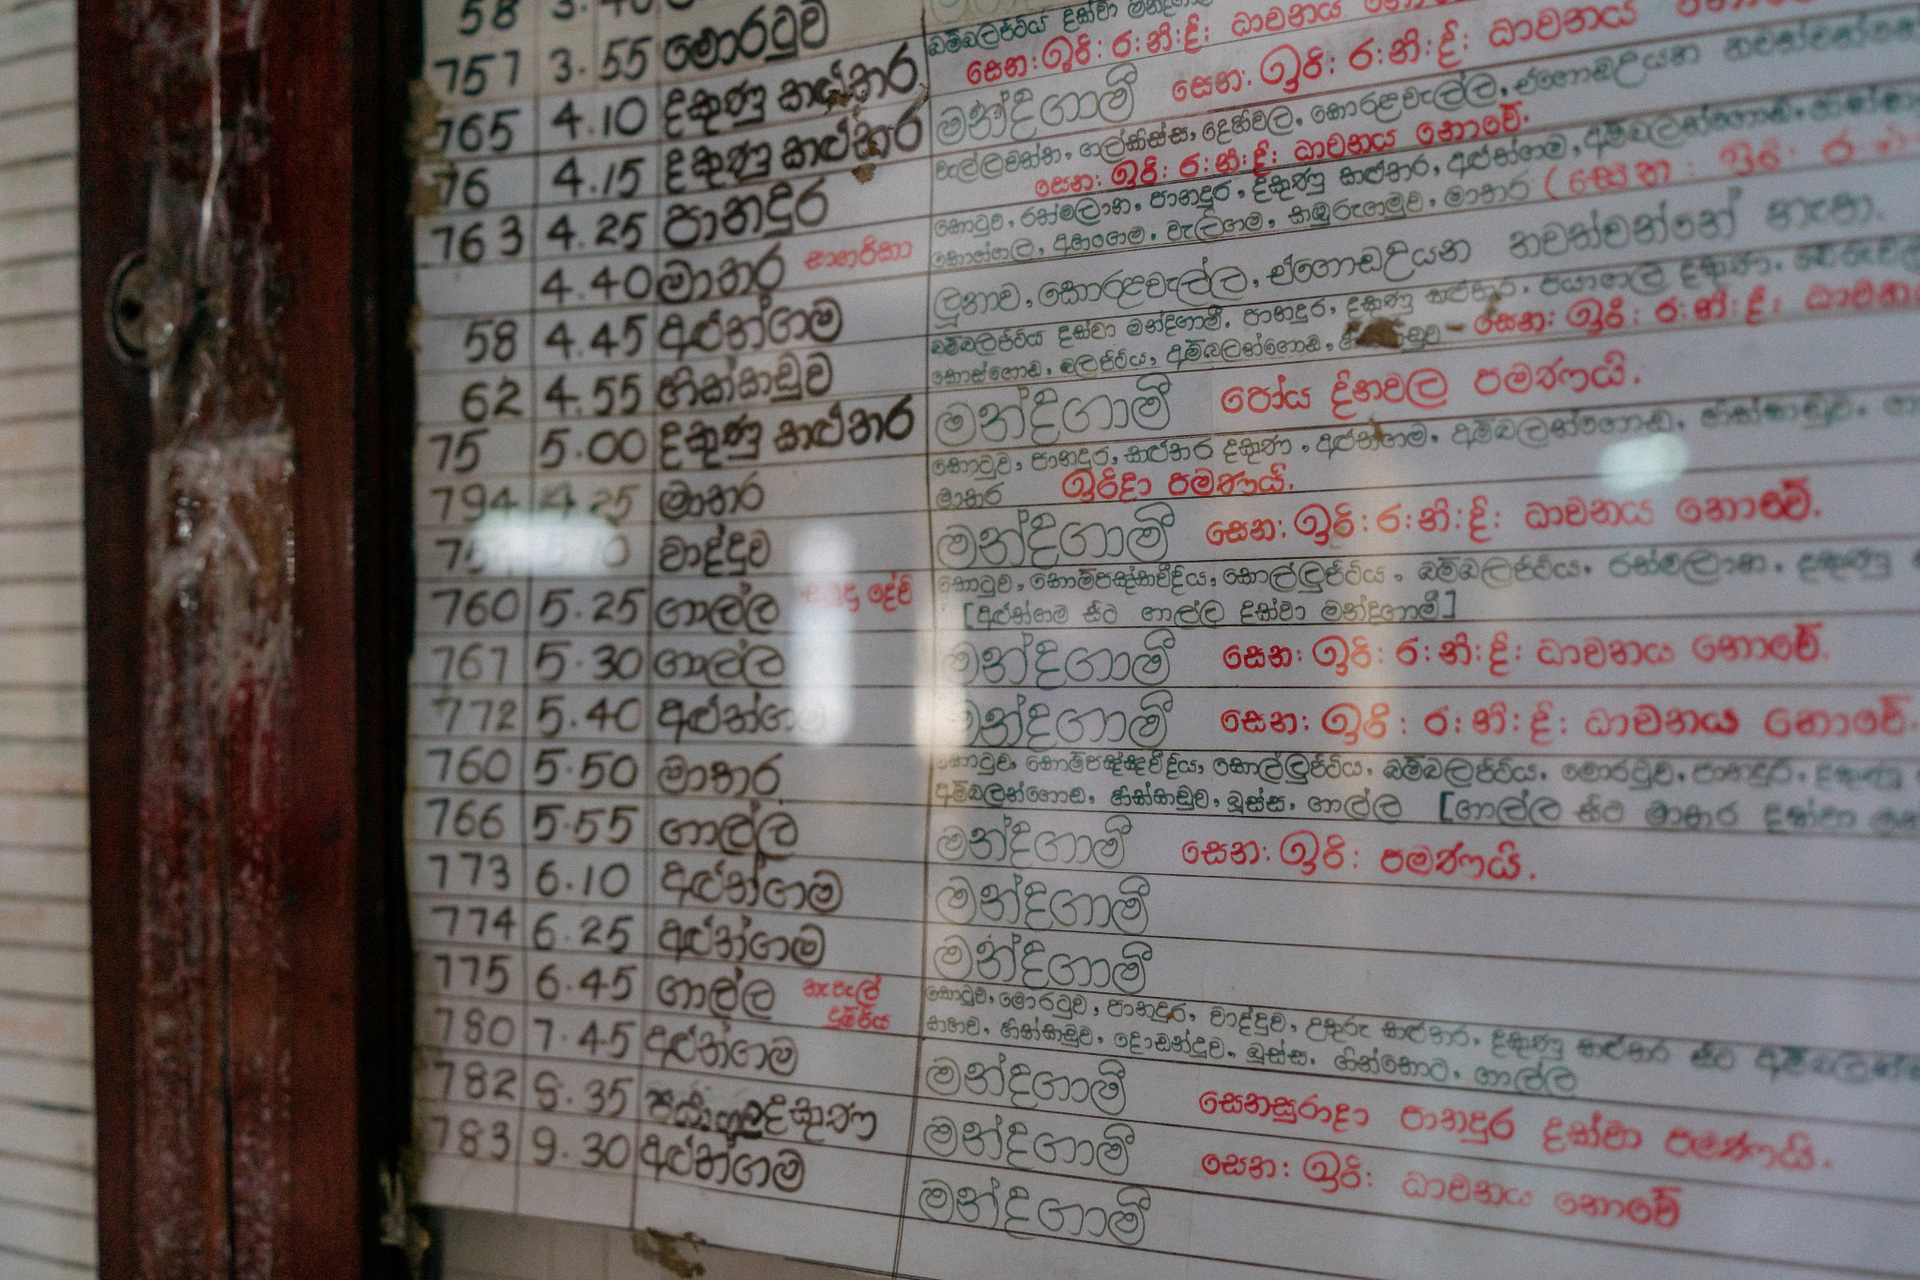 58
757 3.55 මොරටුව
බම්බලපිටිය දක්වා
සෙන: ඉරි: ර: නි: දි: ධාවනය
765 4.10 දකුණු කළුතර මන්දගාමී සෙන: ඉරි: ර: නි: දි: ධාවනය
76 4.15 දකුණු කළුතර
වැල්ලවත්ත, ගල්කිස්ස, දෙහිවල, කොරළවැල්ල, එගොඩඋයන
සෙන: ඉරි: ර: නි: දි: ධාවනය නොවේ.
763 4.25 පානදුර
4.40 මාතර සාගරිකා
කොටුව, රත්මලාන, පානදුර, දකුණු කළුතර, අළුත්ගම, අම්බලන්ගොඩ,
කොග්ගල, අහංගම, වැලිගම, කඹුරුගමුව, මාතර (සෙන: ඉරි:
58 4.45 අළුත්ගම ලුනාව, කොරළවැල්ල, එගොඩඋයන නවත්වන්නේ නැත.
62 4.55 හික්කඩුව
බම්බලපිටිය දක්වා මන්දගාමී, පානදුර, දකුණු කළුතර, පයාගල දකුණ,
කොස්ගොඩ, බලපිටිය, අම්බලන්ගොඩ, සෙන: ඉරි: ර: නි: දි:
75 5.00 දකුණු කළුතර මන්දගාමී පෝය දිනවල පමණයි.
794 4.25 මාතර
කොටුව, පානදුර, කළුතර දකුණ, අළුත්ගම, අම්බලන්ගොඩ, හික්කඩුව,
මාතර ඉරිදා පමණයි.
වාද්දුව මන්දගාමී සෙන: ඉරි: ර: නි: දි: ධාවනය නොවේ.
760 5.25 ගාල්ල සමුද්‍ර දේවි
කොටුව, කොම්පඤ්ඤවීදිය, කොල්ලුපිටිය, බම්බලපිටිය, රත්මලාන, දකුණු
[අළුත්ගම සිට ගාල්ල දක්වා මන්දගාමී]
767 5.30 ගාල්ල මන්දගාමී සෙන: ඉරි: ර: නි: දි: ධාවනය නොවේ.
772 5.40 අළුත්ගම මන්දගාමී සෙන: ඉරි: ර: නි: දි: ධාවනය නොවේ.
760 5.50 මාතර
කොටුව, කොම්පඤ්ඤවීදිය, කොල්ලුපිටිය, බම්බලපිටිය, මොරටුව, පානදුර, දකුණු
අම්බලන්ගොඩ, හික්කඩුව, බූස්ස, ගාල්ල [ගාල්ල සිට මාතර දක්වා
766 5.55 ගාල්ල මන්දගාමී සෙන: ඉරි: පමණයි.
773 6.10 අළුත්ගම මන්දගාමී
774 6.25 අළුත්ගම මන්දගාමී
775 6.45 ගාල්ල
දුම්රිය
කොටුව, මොරටුව, පානදුර, වාද්දුව, උතුරු කළුතර, දකුණු කළුතර සිට
හික්කඩුව, දොඩන්දූව, බූස්ස, ගින්තොට, ගාල්ල
780 7.45 අළුත්ගම මන්දගාමී
සෙනසුරාදා පානදුර දක්වා පමණයි.
782 8.35 දකුණ මන්දගාමී
සෙන: ඉරි: ධාවනය නොවේ
783 9.30 අළුත්ගම මන්දගාමී